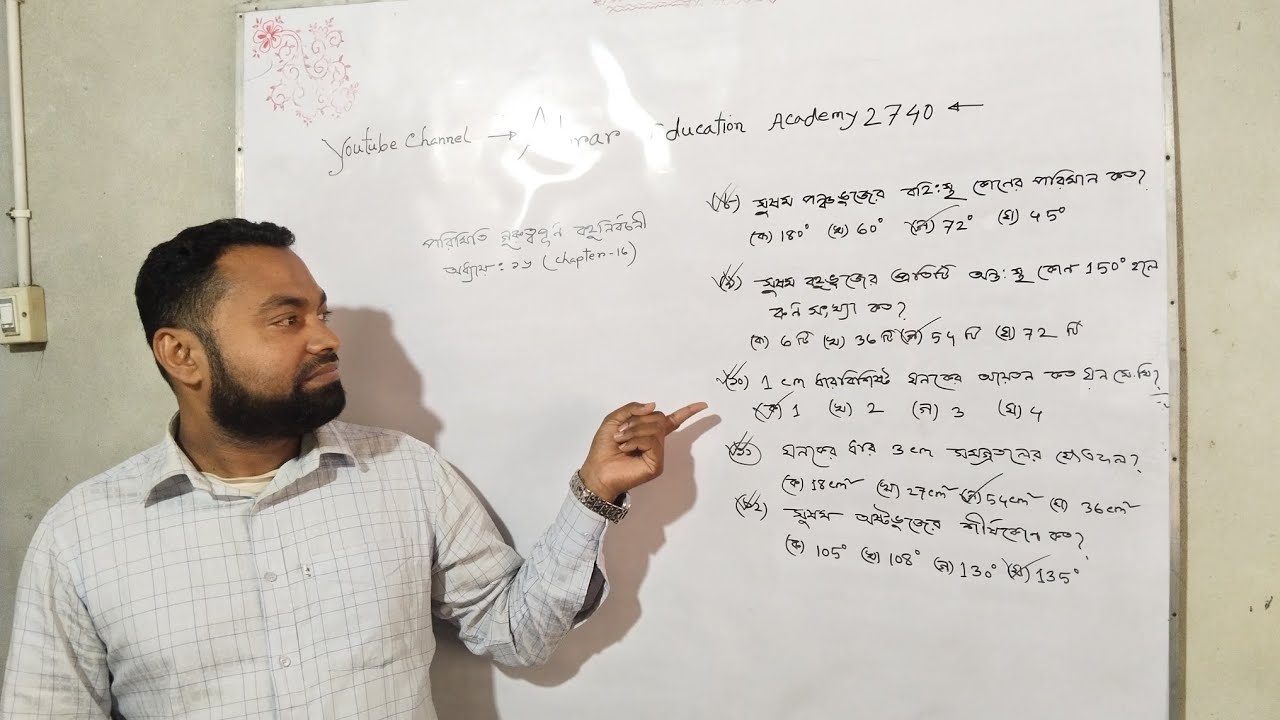 Youtube Channel → Education Academy 2740 ←
পরিমিতি গুরুত্বপূর্ণ বহুনির্বচনী
অধ্যায়: ১৬ (chapter-16)
সুষম পঞ্চভুজের বহিঃস্থ কোনের পরিমান কত?
(ক) 180° (খ) 60° (গ) 72° (ঘ) 45°
সুষম বহুভুজের প্রতিটি অন্তঃস্থ কোন 150° হলে
কর্ন সংখ্যা কত?
(ক) 6 টি (খ) 36 টি (গ) 54 টি (ঘ) 72 টি
১০) 1 cm ধারবিশিষ্ট ঘনকের আয়তন কত ঘন সে.মি?
(ক) 1 (খ) 2 (গ) 3 (ঘ) 4
১১) ঘনকের ধার 3 cm সমগ্রতলের ক্ষেত্রফল?
(ক) 18cm² (খ) 27cm² (গ) 54cm² (ঘ) 36cm²
১২) সুষম অষ্টভুজের শীর্ষকোন কত?
(ক) 105° (খ) 108° (গ) 130° (ঘ) 135°